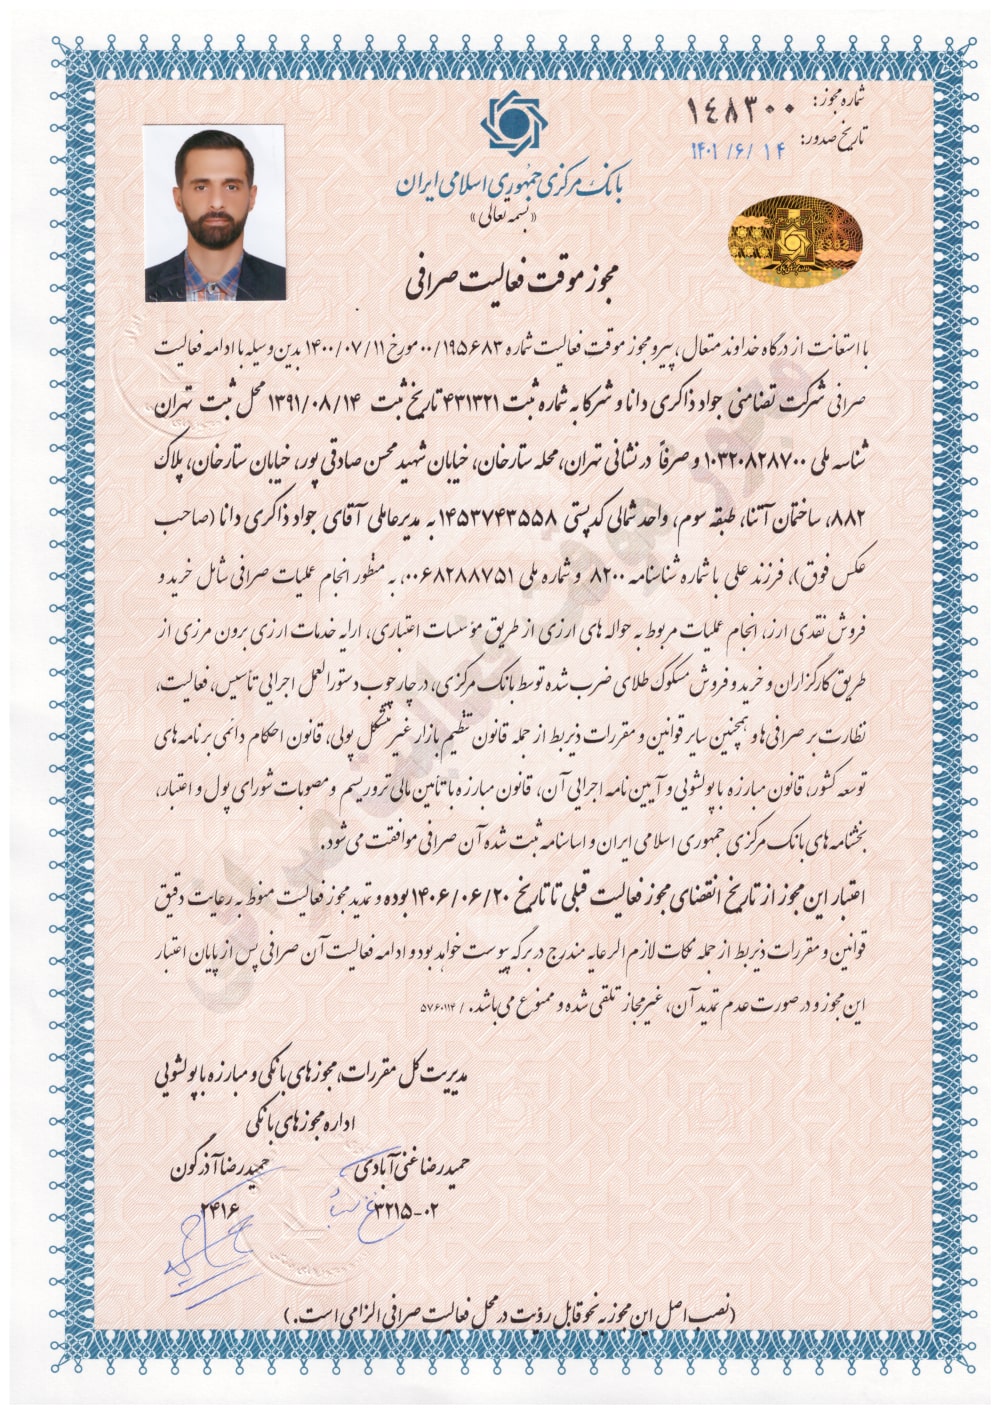 شماره مجوز: ۱۴۸۳۰۰
تاریخ صدور: ۱۴۰۱/۶/۱۴
بانک مرکزی جمهوری اسلامی ایران
«بسمه تعالی»
مجوز موقت فعالیت صرافی
با استعانت از درگاه خداوند متعال، پیرو مجوز موقت فعالیت شماره ۰۰/۱۹۵۶۸۳ مورخ ۱۴۰۰/۰۷/۱۱ بدین وسیله با ادامه فعالیت
صرافی شرکت تضامنی جواد ذاکری دانا و شرکا به شماره ثبت ۴۳۱۳۲۱ تاریخ ثبت ۱۳۹۱/۰۸/۱۴ محل ثبت تهران
شناسه ملی ۱۰۳۲۰۸۲۸۷۰۰ و صرفاً در نشانی تهران، محله ستارخان، خیابان شهید محسن صادقی پور، خیابان ستارخان، پلاک
۸۸۲، ساختمان آتنا، طبقه سوم، واحد شمالی کدپستی ۱۴۵۳۷۴۳۵۵۸ به مدیرعاملی آقای جواد ذاکری دانا (صاحب
عکس فوق)، فرزند علی با شماره شناسنامه ۸۲۰۰ و شماره ملی ۰۰۶۸۲۸۸۷۵۱، به منظور انجام عملیات صرافی شامل خرید و
فروش نقدی ارز، انجام عملیات مربوط به حواله های ارزی از طریق مؤسسات اعتباری، ارایه خدمات ارزی برون مرزی از
طریق کارگزاران و خرید و فروش مسکوک طلای ضرب شده توسط بانک مرکزی، در چارچوب دستورالعمل اجرایی تأسیس، فعالیت،
نظارت بر صرافی ها و همچنین سایر قوانین و مقررات ذیربط از جمله قانون تنظیم بازار غیر متشکل پولی، قانون احکام دائمی برنامه های
توسعه کشور، قانون مبارزه با پولشویی و آیین نامه اجرایی آن، قانون مبارزه با تأمین مالی تروریسم و مصوبات شورای پول و اعتبار،
بخشنامه های بانک مرکزی جمهوری اسلامی ایران و اساسنامه ثبت شده آن صرافی موافقت می شود.
اعتبار این مجوز از تاریخ انقضای مجوز فعالیت قبلی تا تاریخ ۱۴۰۶/۰۶/۲۰ بوده و تمدید مجوز فعالیت منوط به رعایت دقیق
قوانین و مقررات ذیربط از جمله نکات لازم الرعایه مندرج در برگه پیوست خواهد بود و ادامه فعالیت آن صرافی پس از پایان اعتبار
این مجوز و در صورت عدم تمدید آن، غیرمجاز تلقی شده و ممنوع می باشد. / ۵۷۶۰۱۱۴
مدیریت کل مقررات، مجوزهای بانکی و مبارزه با پولشویی
اداره مجوزهای بانکی
حمیدرضا غنی آبادی حمیدرضا آذرگون
۳۲۱۵-۰۲ ۲۴۱۶
(نصب اصل این مجوز به نحو قابل رؤیت در محل فعالیت صرافی الزامی است.)
مجوز موقت فعالیت صرافی